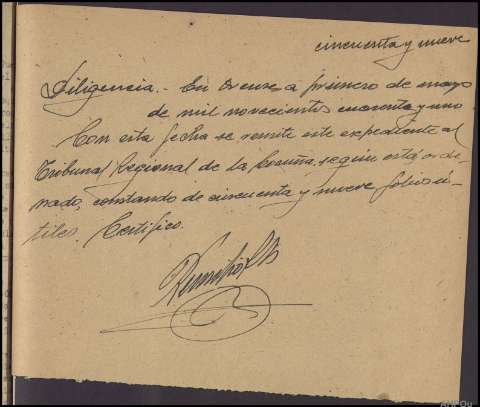 cincuenta y nueve
Diligencia.- En Orense a primero de mayo
de mil novecientos cuarenta y uno
Con esta fecha se remite este expediente al
Tribunal Regional de la Coruña, según está orde-
nado, constando de cincuenta y nueve folios ú-
tiles. Certifico.
AHPOu